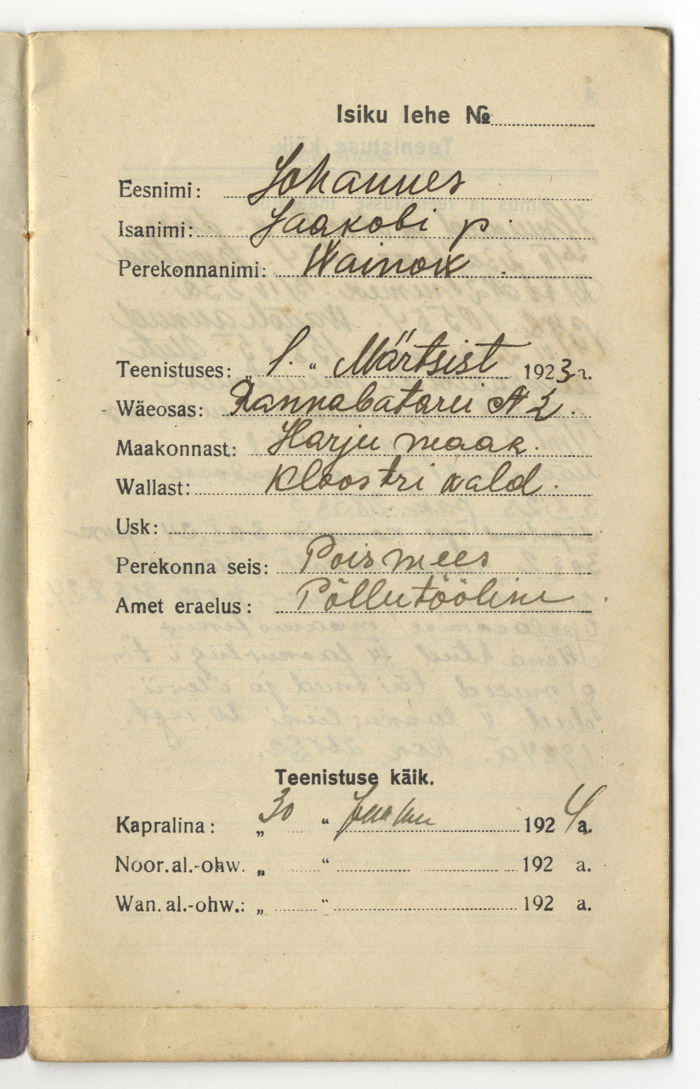 Isiku lehe №
Eesnimi: Johannes
Isanimi: Jaakobi p.
Perekonnanimi: Wainok
Teenistuses: „ 1. “ Märtsist 1923 a.
Wäeosas: Rannabatarei № 2.
Maakonnast: Harju maak.
Wallast: Kloostri wald.
Usk:
Perekonna seis: Poismees
Amet eraelus: Põllutööline
Teenistuse käik.
Kapralina: „ 30 “ 1924 a.
Noor.al.-ohw. „ “ 192 a.
Wan.al.-ohw.: „ “ 192 a.